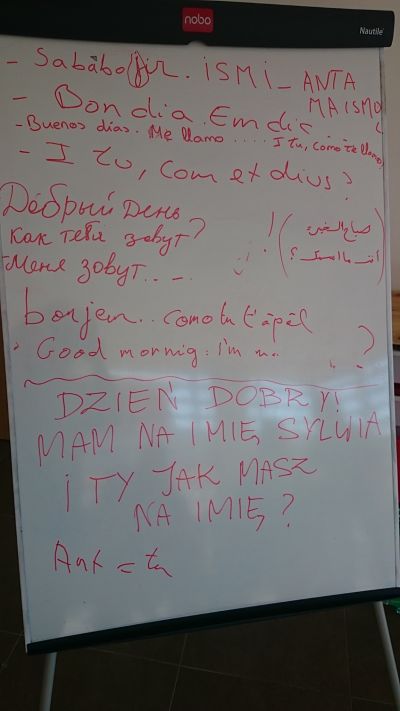 nobo
Nautile
- Sababo jir. iSMi - ANTA
MA ISMO
- Bon dia. Em dic
- Buenos días. Me llamo .... I tu, como te llamas?
- I tu, com et dius?
Добрый День
Как тебя зовут?
-Меня зовут....
صباح الخير
أنت ما اسمك؟
bonjen.. como tu t'àpèl
Good mornig: I'm
DZIEŃ DOBRY!
MAM NA IMIĘ SYLWIA
i TY JAK MASZ
NA IMIĘ?
= tu